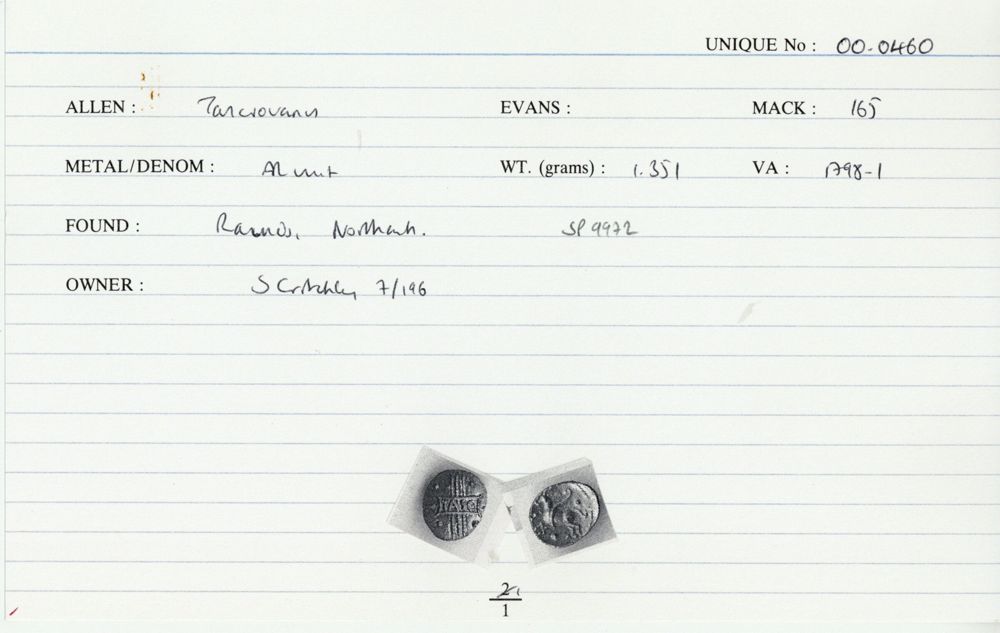 UNIQUE No : 00-0460
ALLEN : Tasciovanus EVANS : MACK : 165
METAL/DENOM : AR unit WT. (grams) : 1.351 VA : 1798-1
FOUND : Raunds, Northants. SP 9972
OWNER : S Critchley 7/196
TASC
2
1